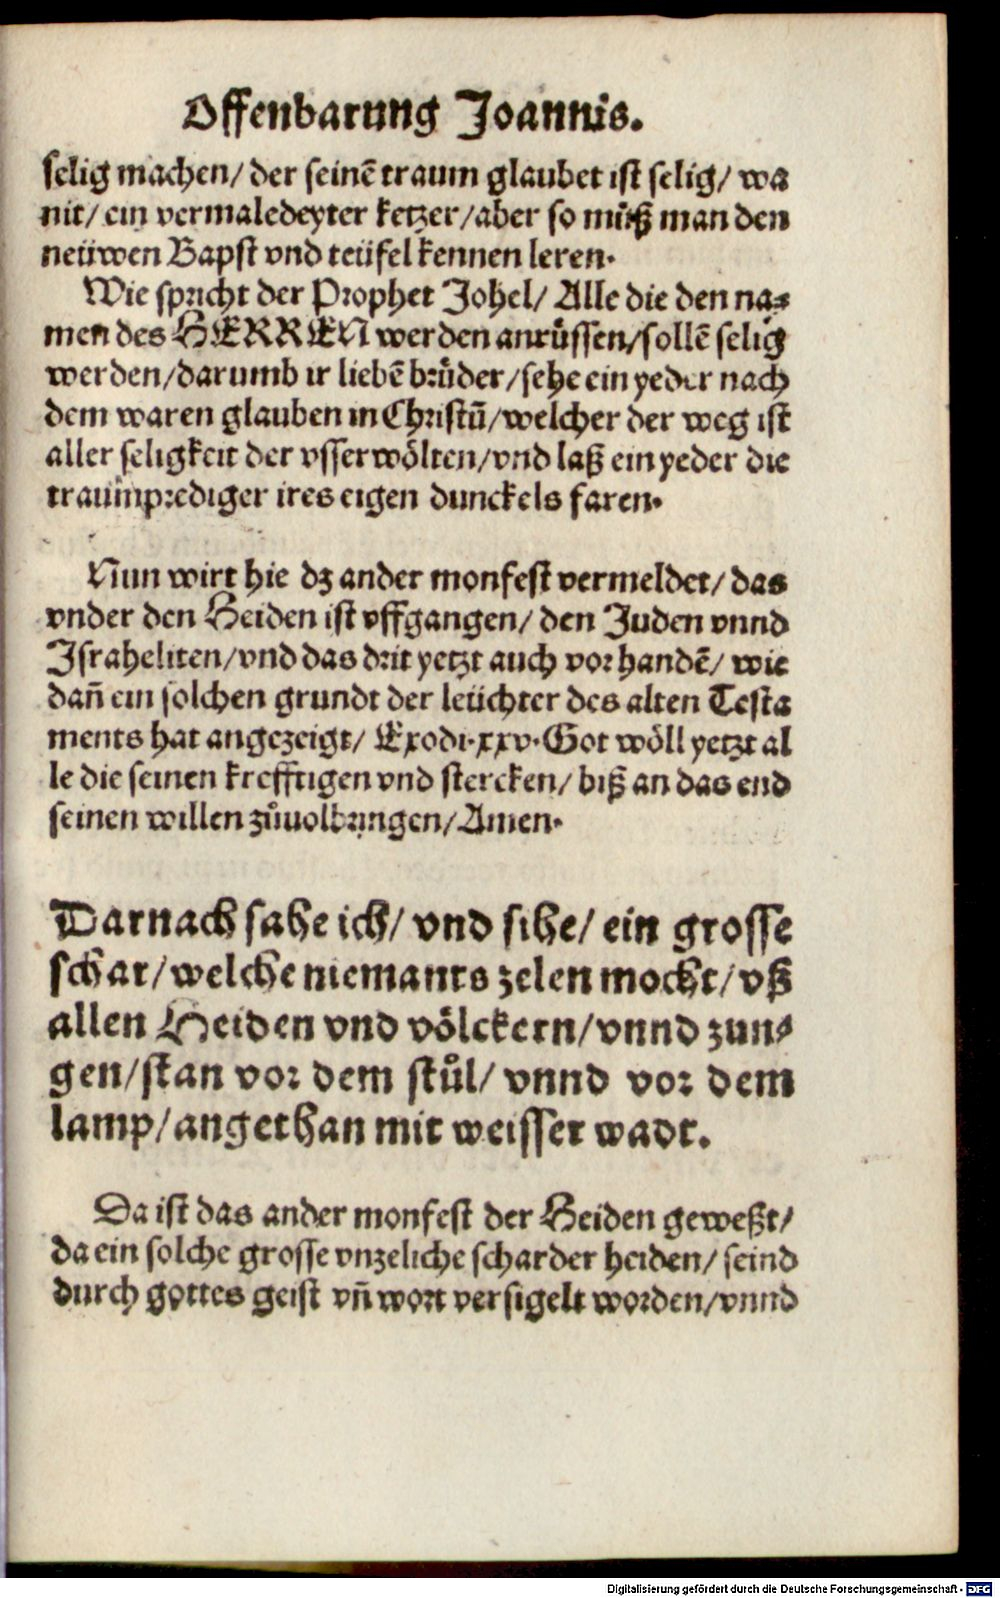 Offenbarung Joannis.
selig machen/ der seinē traum glaubet ist selig/ wa
nit/ ein vermaledeyter ketzer/aber so můß man den
neüwen Bapst vnd teüfel kennen leren.
Wie spricht der Prophet Johel/ Alle die den na⸗
men des HERREN werden anrůffen/sollē selig
werden/darumb ir liebē brůder/sehe ein yeder nach
dem waren glauben in Christū/welcher der weg ist
aller seligkeit der vsserwölten/vnd laß ein yeder die
traumprediger ires eigen dunckels faren.
Nun wirt hie dz ander monfest vermeldet/ das
vnder den Heiden ist vffgangen/ den Juden vnnd
Jsraheliten/vnd das drit yetzt auch vorhandē/ wie
dañ ein solchen grundt der leüchter des alten Testa
ments hat angezeigt/ Exodi.xxv.Got wöll yetzt al
le die seinen krefftigen vnd stercken/ biß an das end
seinen willen zůuolbringen/Amen.
Darnach sahe ich/ vnd sihe/ ein grosse
schar/welche niemants zelen mocht/vß
allen Heiden vnd völckern/vnnd zun⸗
gen/stan vor dem stůl/ vnnd vor dem
lamp/angethan mit weisser wadt.
Da ist das ander monfest der Heiden geweßt/
da ein solche grosse vnzeliche schar der heiden/ seind
durch gottes geist vñ wort versigelt worden/vnnd
Digitalisierung gefördert durch die Deutsche Forschungsgemeinschaft - DFG